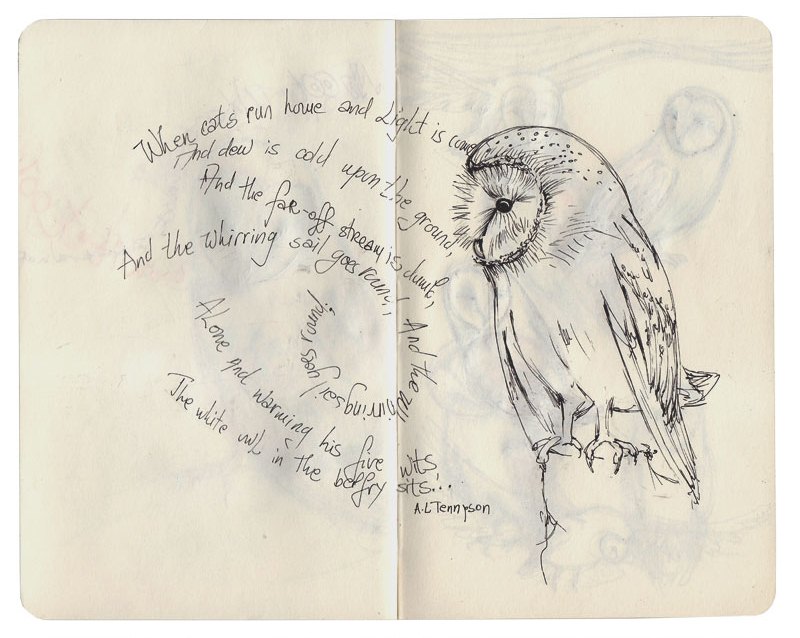 When cats run home and Light is come
And dew is cold upon the ground,
And the far-off stream is dumb,
And the Whirring sail goes round,
And the Whirring sail goes round;
Alone and warming his five wits
The white owl in the belfry sits...
A.L Tennyson